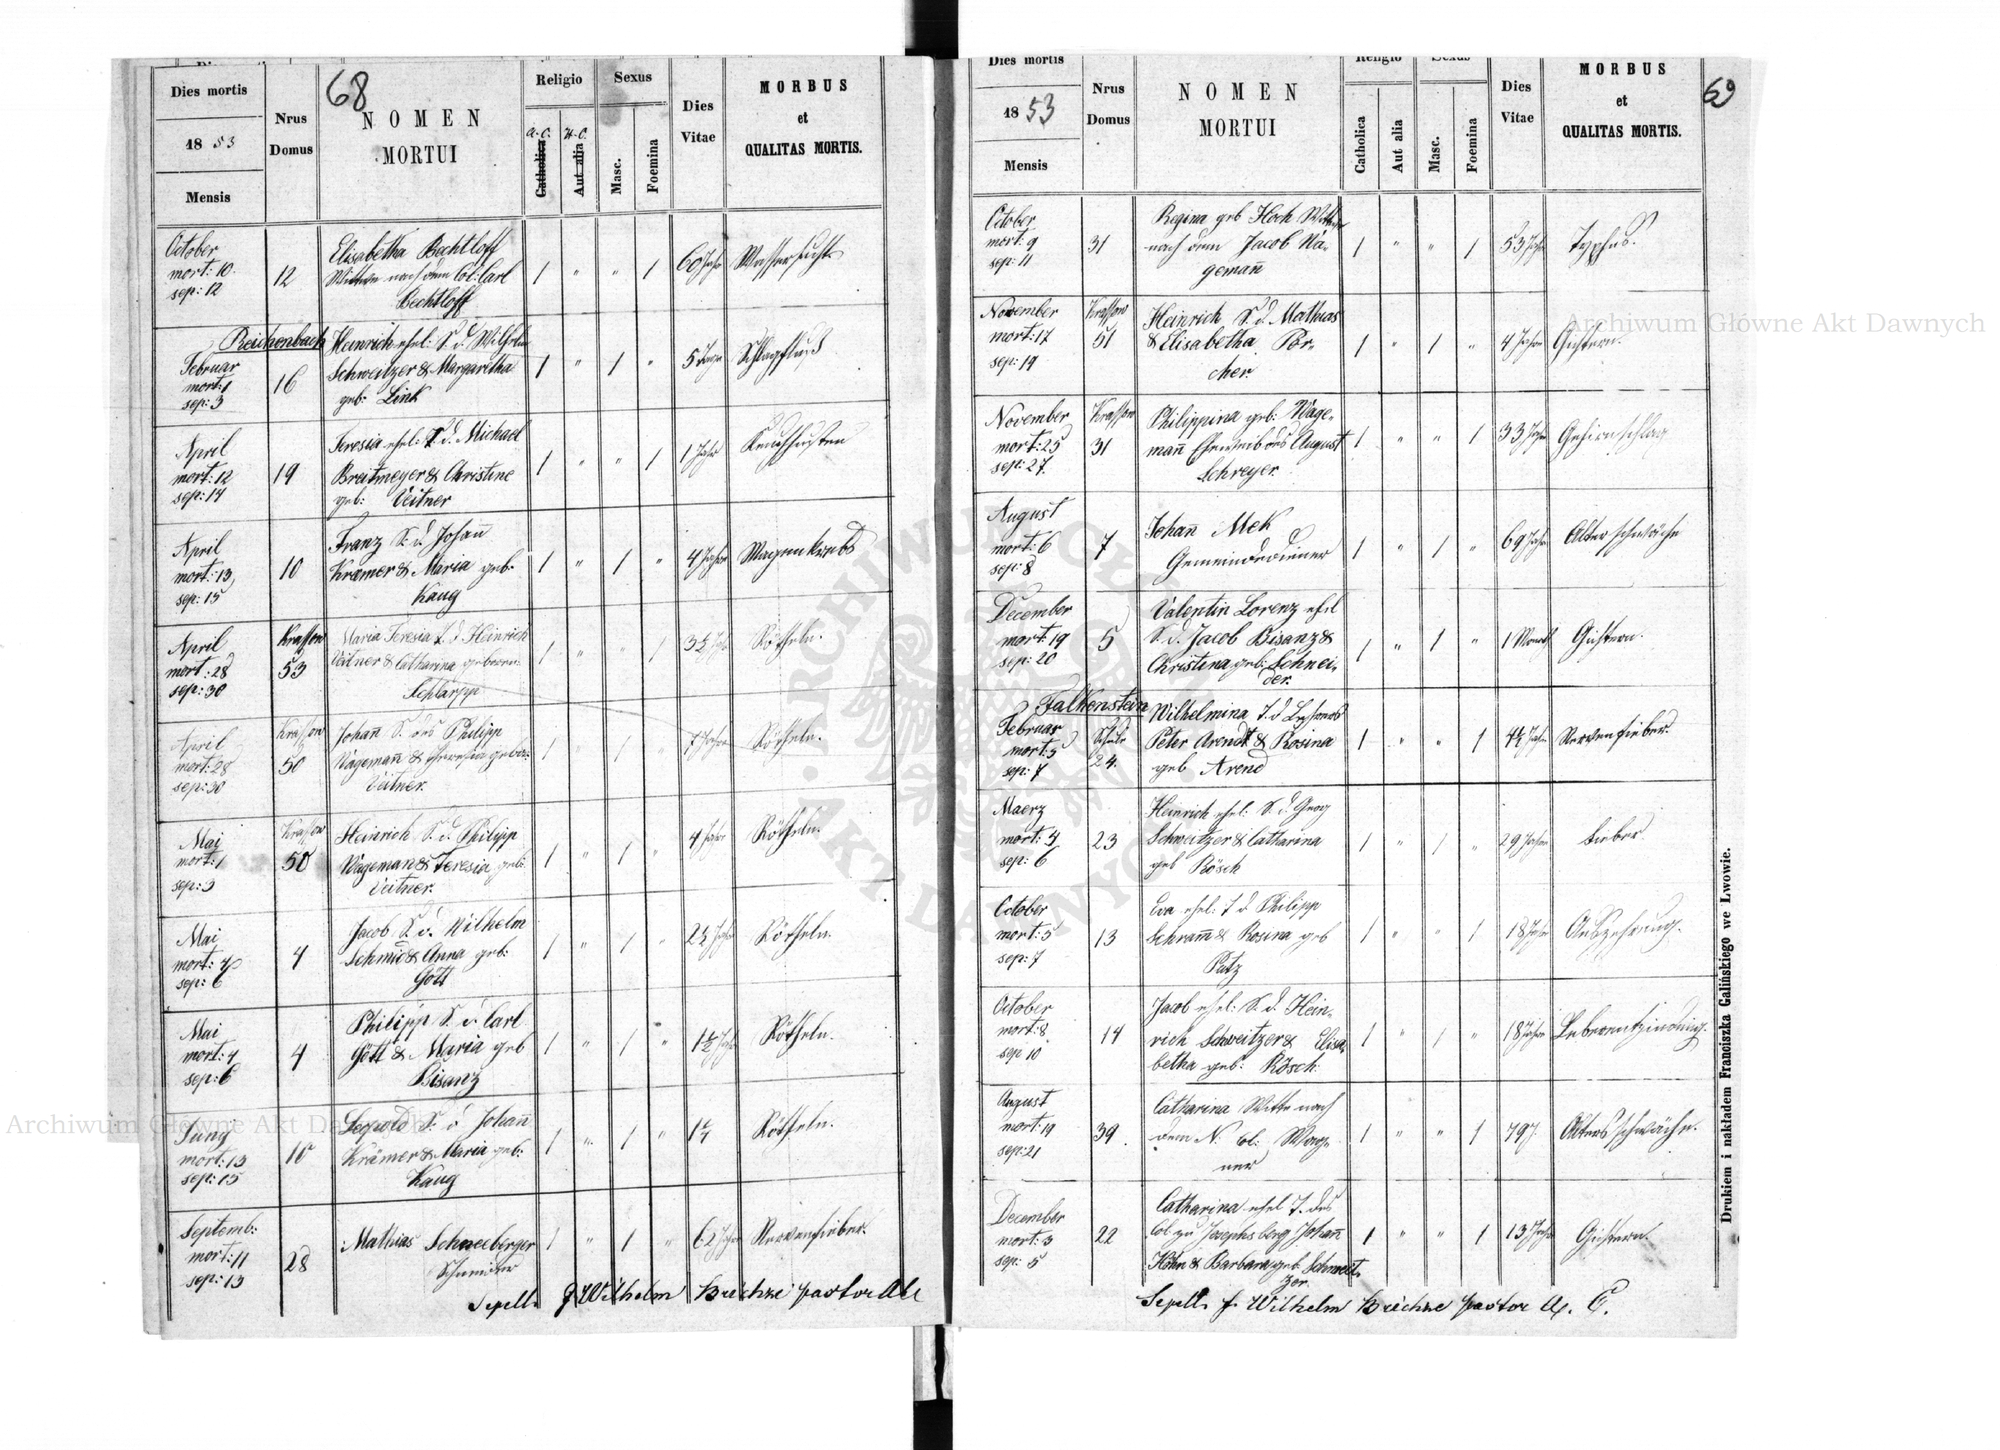 68
Dies mortis
1853
Mensis
Nrus
Domus
NOMEN
MORTUI
Religio
A.C.
Catholica
H.C.
Aut alia
Sexus
Masc.
Foemina
Dies
Vitae
MORBUS
et
QUALITAS MORTIS.
October
mort: 10.
sep: 12
12
Elisabetha Bechtloff
Wittwe nach dem Col: Carl
Bechtloff
1 " " 1
60 Jahr
Wassersucht
Reichenbach
Februar
mort: 1
sep: 3
16
Heinrich ehel: S. d. Wilhelm
Schweitzer & Margaretha
geb: Link
1 " 1 "
5 Tage
Schlagfluß
April
mort: 12
sep: 14
19
Teresia ehel: T. d. Michael
Breitmeyer & Christine
geb: Veitner
1 " " 1
1 Jahr
Keuchhusten
April
mort: 13
sep: 15
10
Franz S. d. Johañ
Kramer & Maria geb:
Kaug
1 " 1 "
4 Jahre
Magenkrebs
April
mort: 28
sep: 30
Krassow
53
Maria Teresia T. d. Heinrich
Veitner & Catharina geborn:
Schlarpp
1 " " 1
3½ Jahr
Rötheln.
April
mort: 28
sep: 30
Krassow
50
Johañ S. des Philipp
Wagemañ & Theresia gebor:
Veitner.
1 " 1 "
7 Jahre
Rötheln.
Mai
mort: 1
sep: 3
Krassow
50
Heinrich S. d. Philipp
Wageman & Teresia geb:
Veitner.
1 " 1 "
4 Jahre
Rötheln.
Mai
mort: 4
sep: 6
4
Jacob S. d. Wilhelm
Schmid & Anna geb:
Gött
1 " 1 "
2½ Jahre
Rötheln.
Mai
mort: 4
sep: 6
4
Philipp S. d. Carl
Gött & Maria geb
Bisanz
1 " 1 "
1½ Jahr
Rötheln.
Juny
mort: 13
sep: 15
10
Leopold S. d. Johañ
Krämer & Maria geb:
Kaug
1 " 1 "
Rötheln.
Septemb:
mort: 11
sep: 13
28
Mathias Schneeberger
Schneider
1 " 1 "
62 Jahre
Nervenfieber.
Sepell. Wilhelm Brichze pastor
69
Dies mortis
1853
Mensis
Nrus
Domus
NOMEN
MORTUI
Religio
Catholica
Aut alia
Sexus
Masc.
Foemina
Dies
Vitae
MORBUS
et
QUALITAS MORTIS.
October
mort: 9
sep: 11
31
Regina geb Hoch Wittwe
nach dem Jacob Wa-
gemañ
1 " " 1
53 Jahre
Typhus.
November
mort: 17
sep: 19
Krassow
51
Heinrich S. d. Mathias
& Elisabetha Por-
cher.
1 " 1 "
4 Jahre
November
mort: 25
sep: 27
Krassow
31
Philippina geb: Wage-
mañ Eheweib des August
Schreyer.
1 " " 1
33 Jahre
Gehirnschlag
August
mort: 6
sep: 8
7
Johañ Mek
Gemeindediener
1 " 1 "
69 Jahre
Altersschwäche
December
mort: 19
sep: 20
5
Valentin Lorenz ehel
S. d. Jacob Bisanz &
Christina geb: Schnei-
der.
1 " 1 "
1 Monat
Falkenstein
Februar
mort: 5
sep: 7
Schule
24.
Wilhelmina T. d Lehrers
Peter Arendt & Rosina
geb Arend
1 " " 1
4½ Jahre
Nervenfieber.
Maerz
mort: 4
sep: 6
23
Heinrich ehel: S. d. Georg
Schweitzer & Catharina
geb Rösch
1 " 1 "
29 Jahre
Fieber.
October
mort: 5
sep: 7
13
Eva ehel: T d. Philipp
Schram̃ & Rosina geb
Putz
1 " " 1
18 Jahre
Auszehrung.
October
mort: 8.
sep 10
14
Jacob ehel: S. d. Hein-
rich Schweitzer & Elisa-
betha geb: Rösch.
1 " 1 "
18 Jahre
Leberentzündung.
August
mort: 19
sep: 21
39.
Catharina Witte nach
dem N. Col: Wag-
ner
1 " " 1
79
Altersschwäche.
December
mort: 3
sep: 5
22
Catharina ehel T. des
Col. zu Josephsberg Johañ
Köhn & Barbara geb Schweit-
zer.
1 " " 1
13 Jahre
Sepell. Wilhelm Brichze pastor A. C.
Drukiem i nakładem Franciszka Galińskiego we Lwowie.
Archiwum Główne Akt Dawnych
Archiwum Główne Akt Dawnych
ARCHIWUM GŁÓWNE AKT DAWNYCH